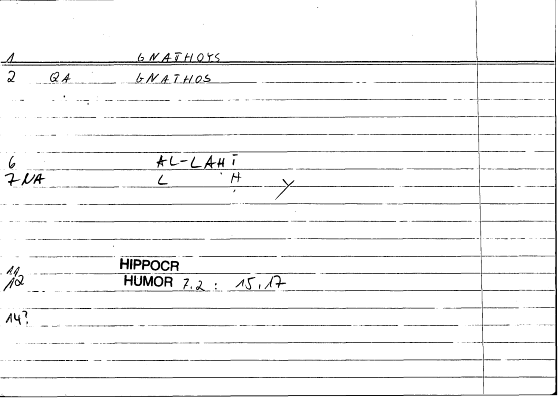 1 GNATHOYS
2 QA GNATHOS
6 AL-LAHĪ
7 NA L H Y
11 HIPPOCR
12 HUMOR 7.2 : 15,17
14?